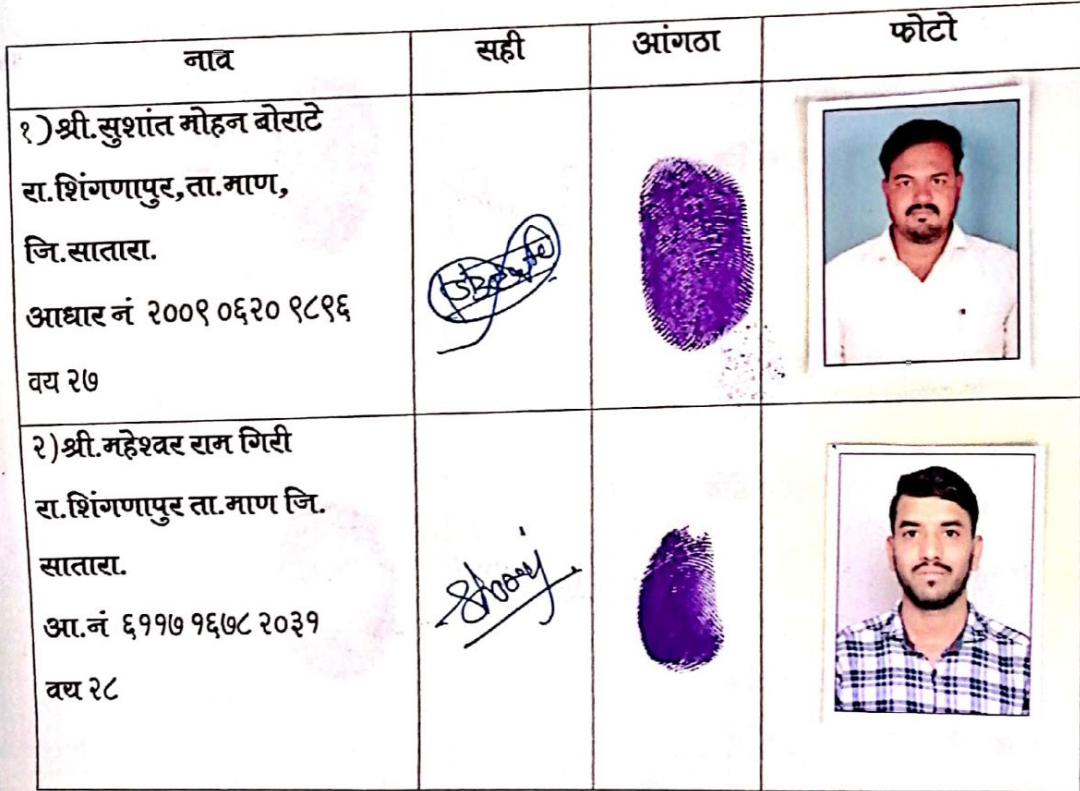 नाव सही आंगठा फोटो
१)श्री.सुशांत मोहन बोराटे
रा.शिंगणापुर,ता.माण,
जि.सातारा.
आधार नं २००९ ०६२० ९८९६
वय २७
२)श्री.महेश्वर राम गिरी
रा.शिंगणापुर ता.माण जि.
सातारा.
आ.नं ६११७ १६७८ २०३१
वय २८